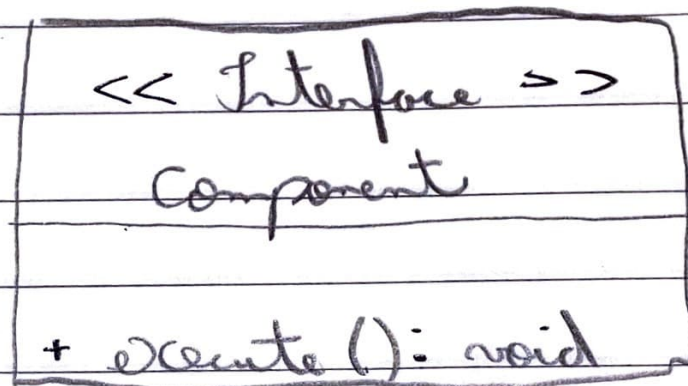 << Interface >>
Component
+ execute(): void